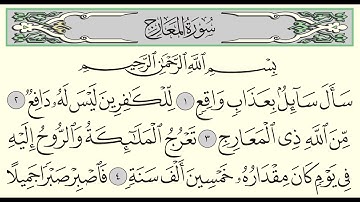 سُورَةُ المَعَارِجِ
بِسْمِ اللَّهِ الرَّحْمَٰنِ الرَّحِيمِ
سَأَلَ سَآئِلٌۢ بِعَذَابٍ وَاقِعٍ ١ لِّلْكَٰفِرِينَ لَيْسَ لَهُۥ دَافِعٌ ٢
مِّنَ ٱللَّهِ ذِى ٱلْمَعَارِجِ ٣ تَعْرُجُ ٱلْمَلَٰٓئِكَةُ وَٱلرُّوحُ إِلَيْهِ
فِى يَوْمٍ كَانَ مِقْدَارُهُۥ خَمْسِينَ أَلْفَ سَنَةٍ ٤ فَٱصْبِرْ صَبْرًا جَمِيلًا